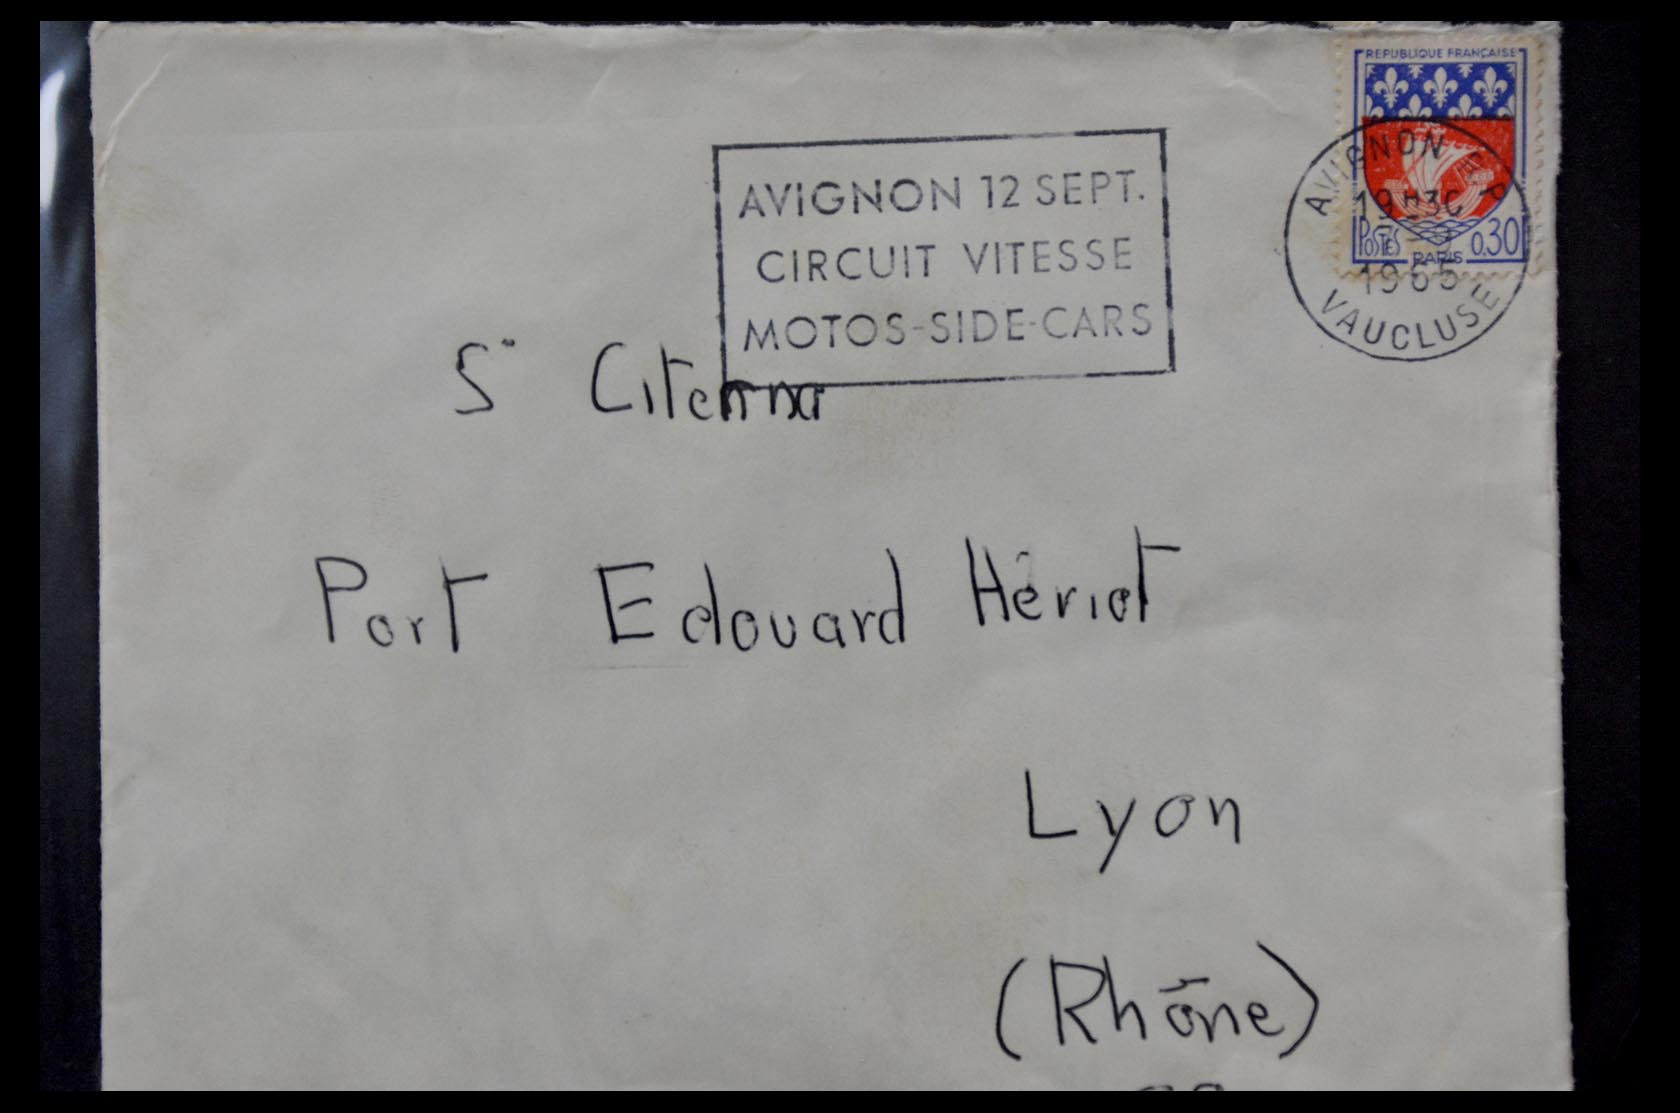 REPUBLIQUE FRANÇAISE
POSTES 0,30
PARIS
AVIGNON
19H30
1965
VAUCLUSE
AVIGNON 12 SEPT.
CIRCUIT VITESSE
MOTOS-SIDE-CARS
Sᵉ Citerna
Port Edouard Hériot
Lyon
(Rhône)